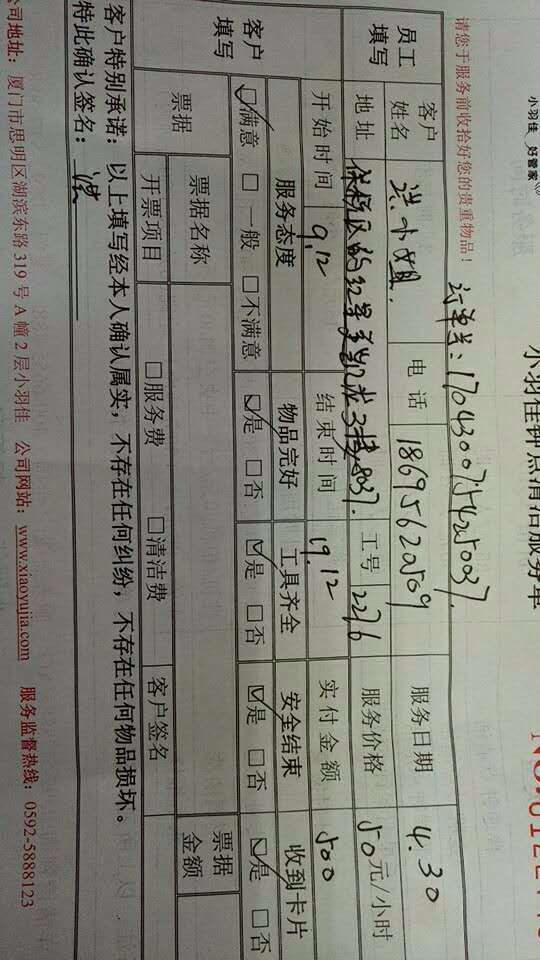 小羽佳 好管家
小羽佳钟点清洁服务单
请您于服务前收拾好您的贵重物品!
订单号:170430075425037.
员工填写 客户姓名 洪小姐. 电话 18695620509 服务日期 4.30
地址 工号 2276 服务价格 50元/小时
开始时间 9.12 结束时间 19.12 实付金额 500
客户填写 服务态度 物品完好 工具齐全 安全结束 收到卡片
☑满意 □一般 □不满意 ☑是 □否 ☑是 □否 ☑是 □否 ☑是 □否
票据 票据名称 票据金额
开票项目 □服务费 □清洁费 客户签名
客户特别承诺:以上填写经本人确认属实,不存在任何纠纷,不存在任何物品损坏。
特此确认签名:洪
公司地址:厦门市思明区湖滨东路319号A幢2层小羽佳 公司网站:www.xiaoyujia.com 服务监督热线:0592-5888123